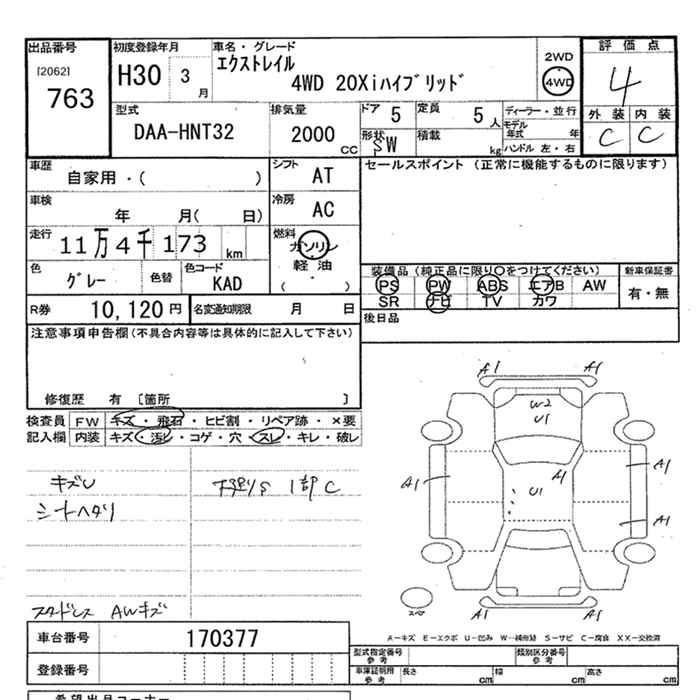 出品番号
[2062]
763
初度登録年月
H30 3 月
車名・グレード
エクストレイル
4WD 20Xiハイブリッド
2WD
4WD
評価点
4
外装 内装
C C
型式
DAA-HNT32
排気量
2000 CC
ドア 5
定員 5 人
形状 SW
積載 kg
ディーラー・並行
モデル年式 年
ハンドル 左・右
車歴
自家用・( )
シフト AT
車検
年 月( 日)
冷房 AC
走行
11万4千173 km
燃料
ガソリン
軽油
( )
色 グレー
色替
色コード
KAD
R券 10,120 円
名変通知期限 月 日
セールスポイント (正常に機能するものに限ります)
装備品 (純正品に限り○をつけてください)
PS PW ABS エアB AW
SR ナビ TV カワ
新車保証書
有・無
後日品
注意事項申告欄 (不具合内容等は具体的に記入して下さい)
修復歴 有 [箇所 ]
検査員記入欄
FW キズ・飛石・ヒビ割・リペア跡・×要
内装 キズ・汚レ・コゲ・穴・スレ・キレ・破レ
キズU
シートヘタリ
下廻りS 1部C
スタッドレス AWキズ
A1 A1
W2
U1
A1
A1
U1
A1
A1
A1 A1
スペア
A−キズ E−エクボ U−凹み W−補修跡 S−サビ C−腐食 XX−交換済
車台番号 170377
登録番号
型式指定番号 参考
類別区分番号 参考
車庫証明用 参考
長さ cm
幅 cm
高さ cm
希望出品コーナー